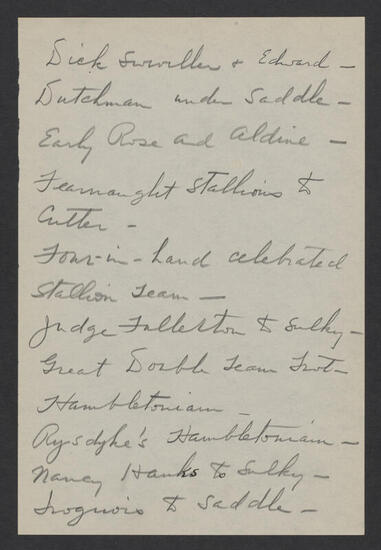 Dick Swiveller & Edward —
Dutchman under Saddle —
Early Rose and Aldine —
Fearnaught Stallions to
Cutter —
Four-in-hand celebrated
Stallion Team —
Judge Fullerton to Sulky —
Great Double Team Trot —
Hambletonian —
Rysdyke's Hambletonian —
Nancy Hanks to Sulky —
Iroquois to Saddle —